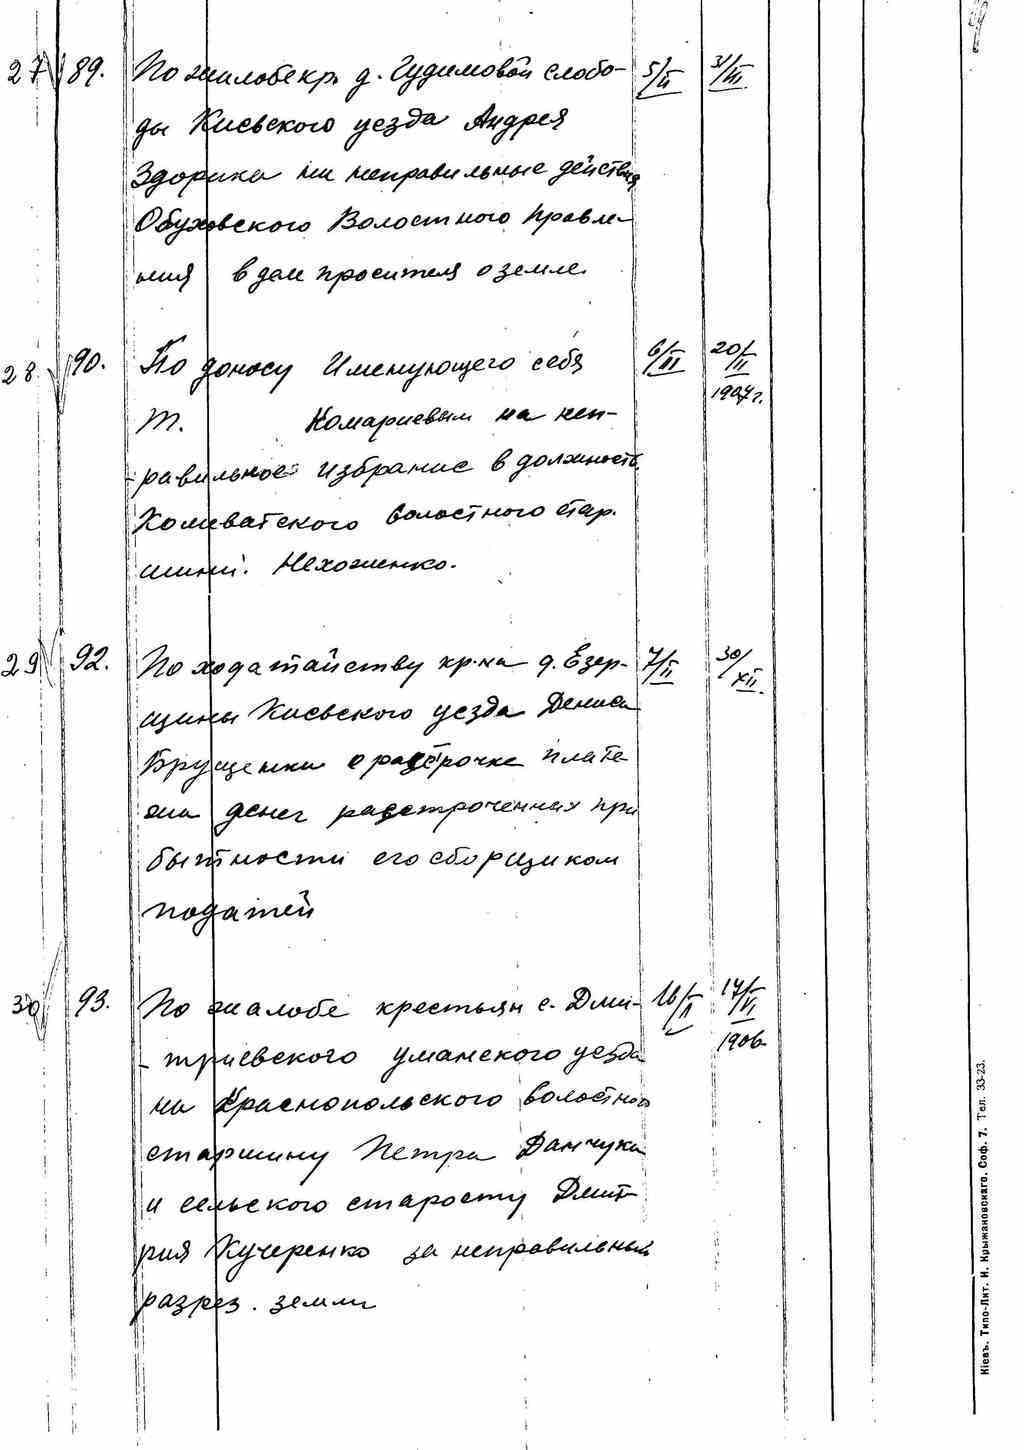 27 89. По жалобе кр. д. Гудимовой слобо- 5/II 31/III
ды Киевского уезда Андрея
Здорика на неправильные действия
Обуховского Волостного Правле-
ния в деле просителя о земле.
28. 90. По доносу Именующего себя 6/III 20/II
1907 г.
Т. Комариевым на неп-
равильное избрание в должность
Хомватского волостного стар-
шины. Нехоженко.
29 92. По ходатайству кр-на д. Езер- 7/II 30/XII.
щины Киевского уезда Дениса
Брущенка о разсрочке плате
жа денег растроченных при
бытности его сборщиком
податей
30 93. По жалобе крестьян с. Дми- 16/II 14/VI
1906
триевского уманского уезда
на Краснопольского волостного
старшину Петра Данчука
и сельского старосту Дмит-
рия Кучеренко за неправильный
разрез. земли
Кіевъ. Типо-Лит. И. Крыжановскаго. Соф. 7. Тел. 33-23.